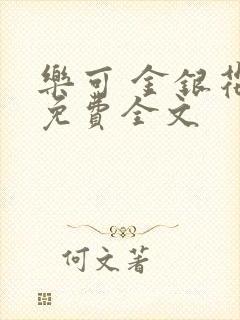 樂可 金銀花
免費全文
何文著